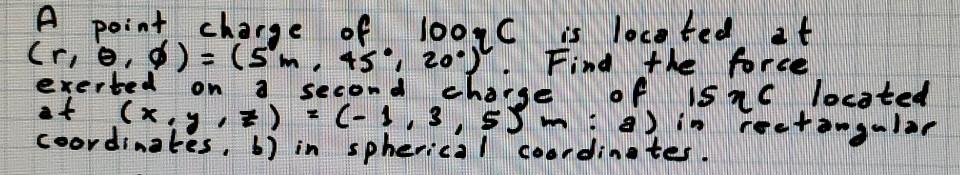 A point charge of 100ηC is located at
(r, θ, ϕ) = (5m, 45°, 20°). Find the force
exerted on a second charge of 15ηC located
at (x, y, z) = (-1, 3, 5) m : a) in rectangular
coordinates, b) in spherical coordinates.